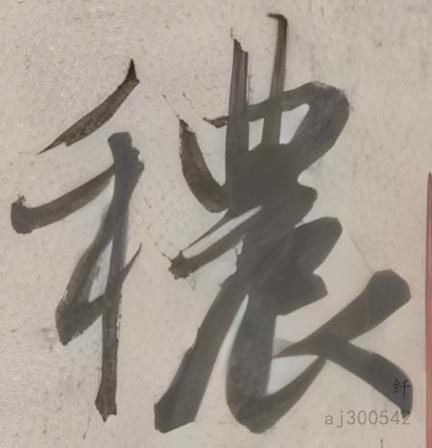 穠
纤
aj300542